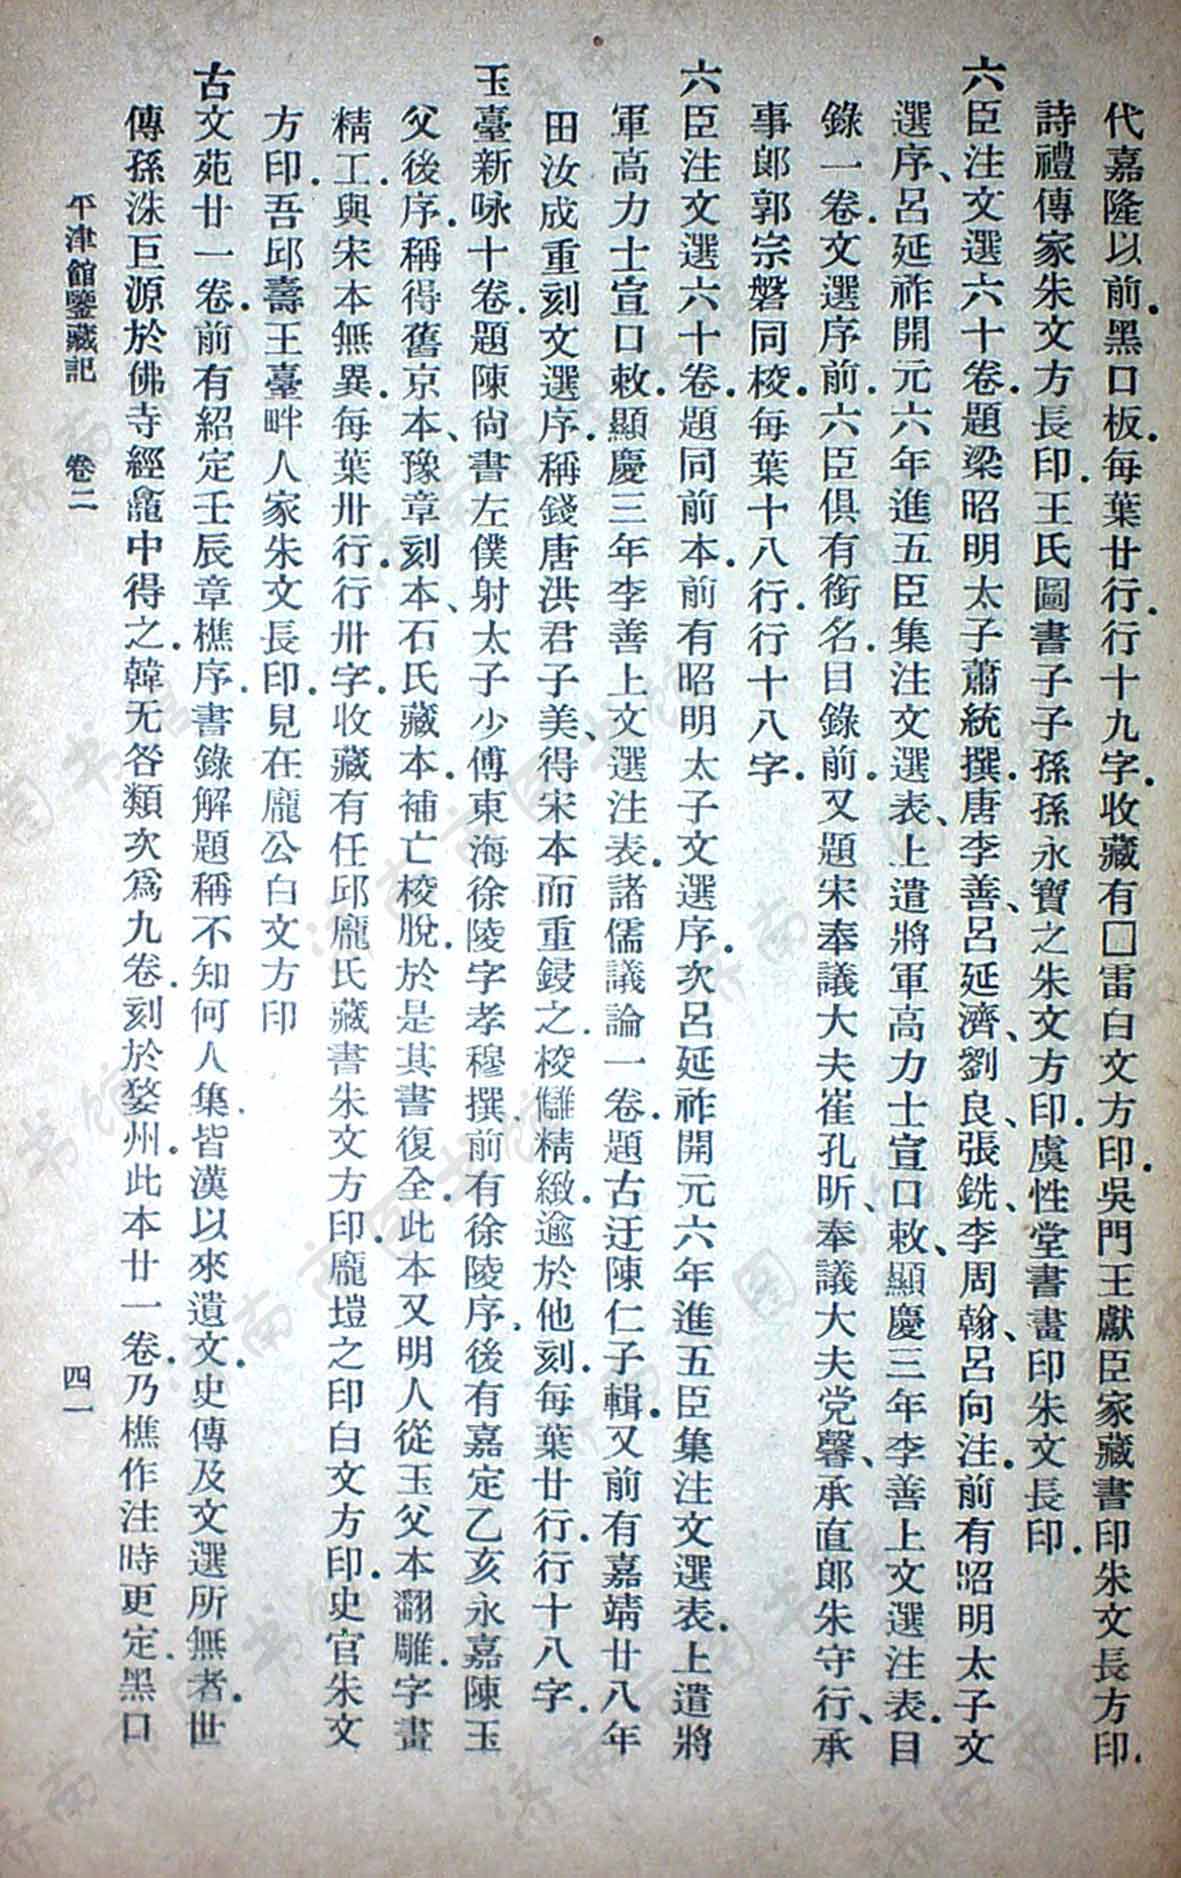 代嘉隆以前.黑口板.每葉廿行.行十九字.收藏有□雷白文方印.吳門王獻臣家藏書印朱文長方印.
詩禮傳家朱文方長印.王氏圖書子子孫孫永寶之朱文方印.虞性堂書畫印朱文長印.
六臣注文選六十卷.題梁昭明太子蕭統撰.唐李善、呂延濟、劉良、張銑、李周翰、呂向注.前有昭明太子文
選序、呂延祚開元六年進五臣集注文選表、上遣將軍高力士宣口敕、顯慶三年李善上文選注表.目
錄一卷.文選序前.六臣俱有銜名.目錄前.又題宋奉議大夫崔孔昕、奉議大夫党馨、承直郎朱守行、承
事郎郭宗磐同校.每葉十八行.行十八字.
六臣注文選六十卷.題同前本.前有昭明太子文選序.次呂延祚開元六年進五臣集注文選表.上遣將
軍高力士宣口敕.顯慶三年李善上文選注表.諸儒議論一卷.題古迂陳仁子輯.又前有嘉靖廿八年
田汝成重刻文選序.稱錢唐洪君子美、得宋本而重鋟之.校讎精緻.逾於他刻.每葉廿行.行十八字.
玉臺新咏十卷.題陳尙書左僕射太子少傅東海徐陵字孝穆撰.前有徐陵序.後有嘉定乙亥永嘉陳玉
父後序.稱得舊京本、豫章刻本、石氏藏本.補亡校脫.於是其書復全.此本又明人從玉父本翻雕.字畫
精工.與宋本無異.每葉卅行.行卅字.收藏有任邱龐氏藏書朱文方印.龐塏之印白文方印.史官朱文
方印.吾邱壽王臺畔人家朱文長印.見在龐公白文方印
古文苑廿一卷.前有紹定壬辰章樵序.書錄解題稱不知何人集.皆漢以來遺文.史傳及文選所無者.世
傳孫洙巨源於佛寺經龕中得之.韓无咎類次爲九卷.刻於婺州.此本廿一卷.乃樵作注時更定.黑口
平津館鑒藏記 卷二 四一